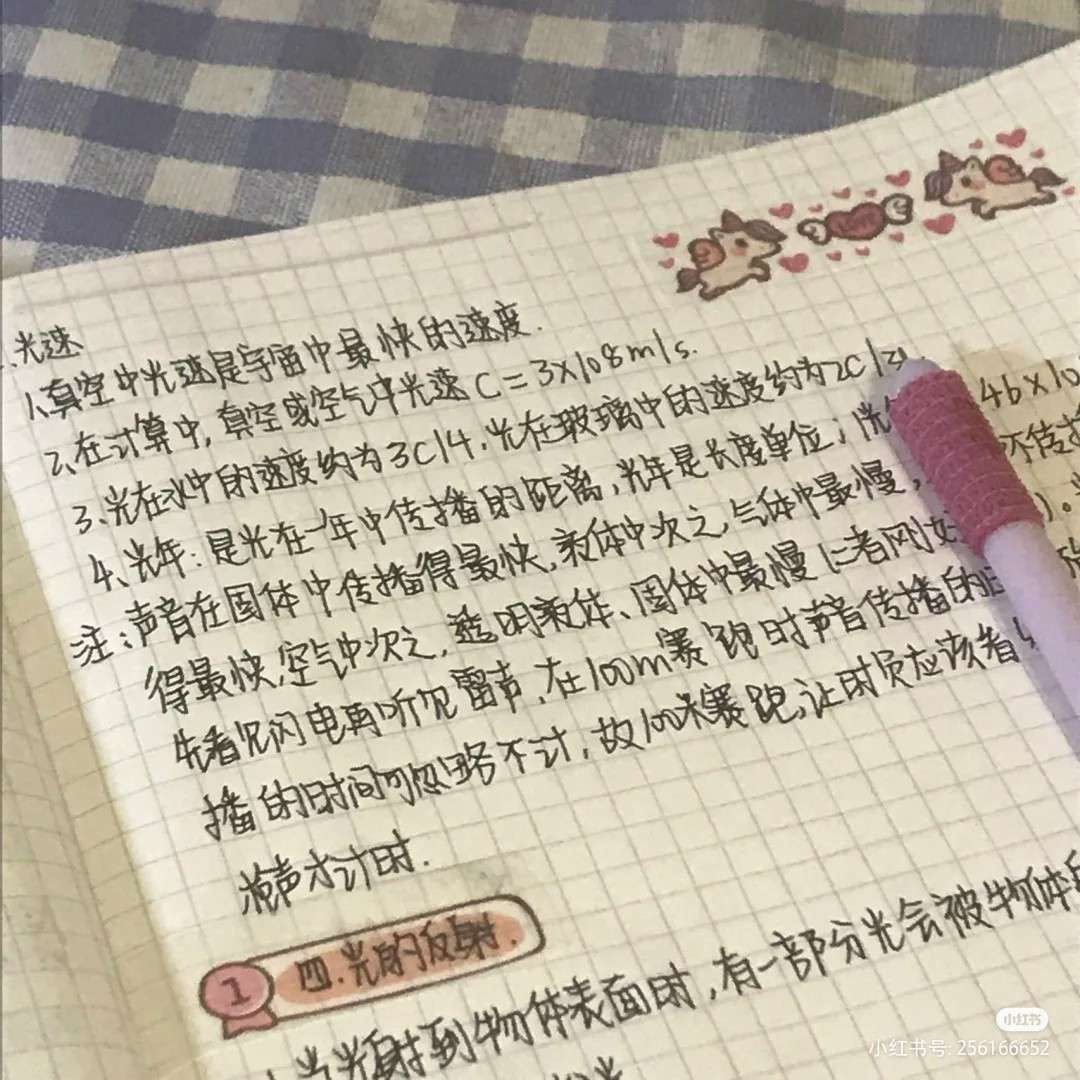 、光速
1、真空中光速是宇宙中最快的速度.
2、在计算中,真空或空气中光速C=3×108m/s.
3、光在水中的速度约为3C/4,光在玻璃中的速度约为2C/3
4、光年:是光在一年中传播的距离,光年是长度单位; 46×10
注:声音在固体中传播得最快,液体中次之,气体中最慢, 不传播
得最快,空气中次之,透明液体、固体中最慢(二者刚好 )。
先看见闪电再听见雷声,在100m赛跑时声音传播的
播的时间可忽略不计,故100米赛跑,让时员应该看
声才计时.
1 四.光的反射.
当光射到物体表面时,有一部分光会被物体
小红书
小红书号: 256166652